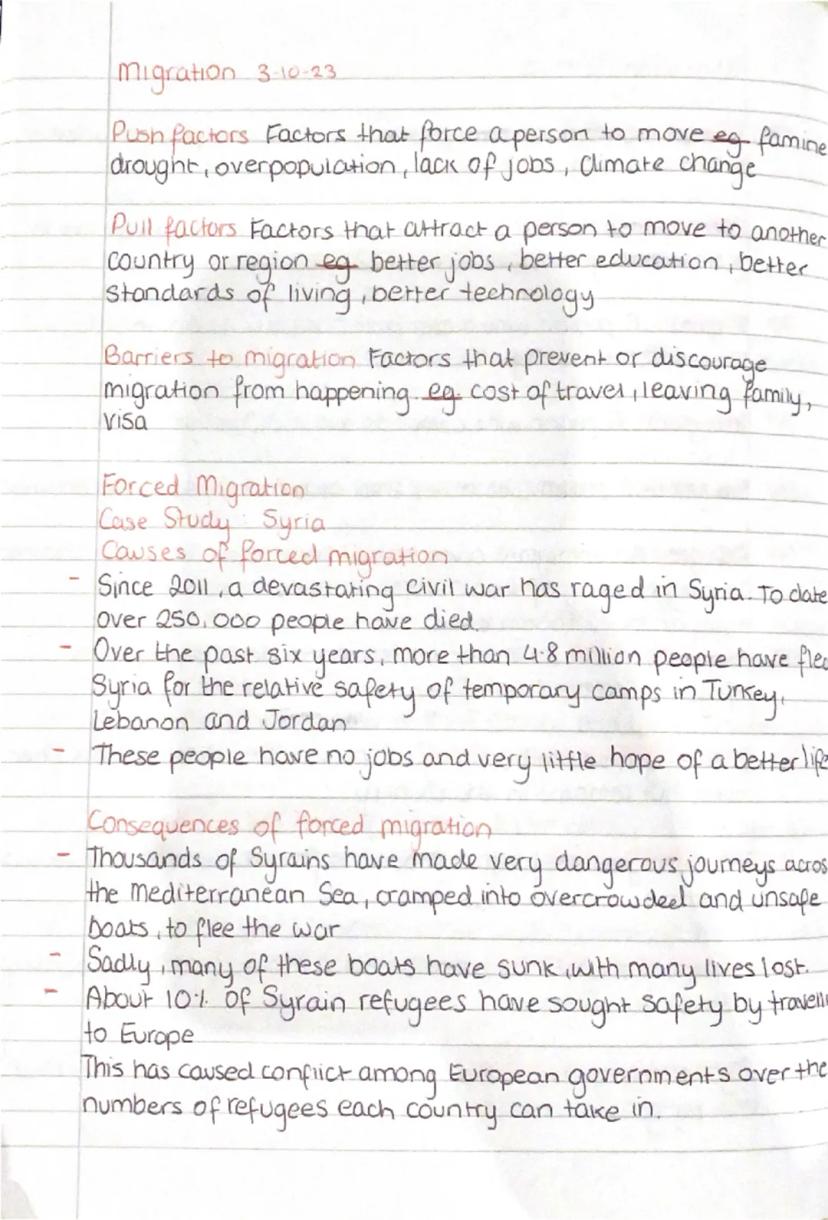 Migration 3-10-23
Push factors Factors that force a person to move eg famine
drought, overpopulation, lack of jobs, climate change
Pull factors Factors that attract a person to move to another
country or region eg better jobs, better education, better
standards of living, better technology
Barriers to migration Factors that prevent or discourage
migration from happening eg. cost of travel, leaving family,
visa
Forced Migration
Case Study: Syria
Causes of forced migration
- Since 2011, a devastating civil war has raged in Syria. To date
over 250,000 people have died.
- Over the past six years, more than 4.8 million people have fled
Syria for the relative safety of temporary camps in Turkey,
Lebanon and Jordan
- These people have no jobs and very little hope of a better life
Consequences of forced migration
- Thousands of Syrains have made very dangerous journeys acros
the Mediterranean Sea, cramped into overcrowded and unsafe
boats, to flee the war
- Sadly, many of these boats have sunk, with many lives lost.
- About 10% of Syrain refugees have sought safety by travelli
to Europe
This has caused conflict among European governments over the
numbers of refugees each country can take in.